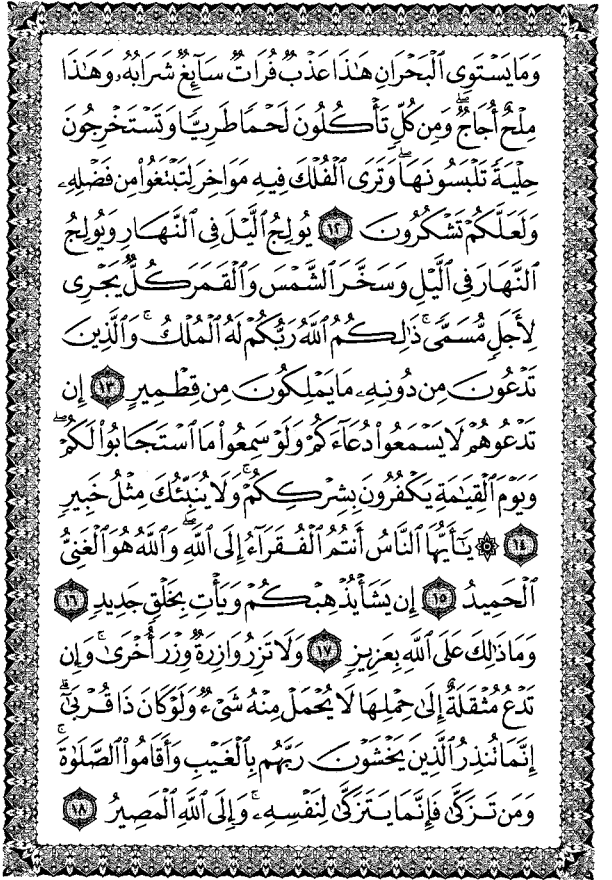 وَمَا يَسْتَوِى ٱلْبَحْرَانِ هَـٰذَا عَذْبٌ فُرَاتٌ سَآئِغٌ شَرَابُهُۥ وَهَـٰذَا
مِلْحٌ أُجَاجٌ ۖ وَمِن كُلٍّ تَأْكُلُونَ لَحْمًا طَرِيًّا وَتَسْتَخْرِجُونَ
حِلْيَةً تَلْبَسُونَهَا ۖ وَتَرَى ٱلْفُلْكَ فِيهِ مَوَاخِرَ لِتَبْتَغُوا۟ مِن فَضْلِهِۦ
وَلَعَلَّكُمْ تَشْكُرُونَ ١٢ يُولِجُ ٱلَّيْلَ فِى ٱلنَّهَارِ وَيُولِجُ
ٱلنَّهَارَ فِى ٱلَّيْلِ وَسَخَّرَ ٱلشَّمْسَ وَٱلْقَمَرَ كُلٌّ يَجْرِى
لِأَجَلٍ مُّسَمًّى ۚ ذَٰلِكُمُ ٱللَّهُ رَبُّكُمْ لَهُ ٱلْمُلْكُ ۚ وَٱلَّذِينَ
تَدْعُونَ مِن دُونِهِۦ مَا يَمْلِكُونَ مِن قِطْمِيرٍ ١٣ إِن
تَدْعُوهُمْ لَا يَسْمَعُوا۟ دُعَآءَكُمْ وَلَوْ سَمِعُوا۟ مَا ٱسْتَجَابُوا۟ لَكُمْ ۖ
وَيَوْمَ ٱلْقِيَـٰمَةِ يَكْفُرُونَ بِشِرْكِكُمْ ۚ وَلَا يُنَبِّئُكَ مِثْلُ خَبِيرٍ
١٤ ۞ يَـٰٓأَيُّهَا ٱلنَّاسُ أَنتُمُ ٱلْفُقَرَآءُ إِلَى ٱللَّهِ ۖ وَٱللَّهُ هُوَ ٱلْغَنِىُّ
ٱلْحَمِيدُ ١٥ إِن يَشَأْ يُذْهِبْكُمْ وَيَأْتِ بِخَلْقٍ جَدِيدٍ ١٦
وَمَا ذَٰلِكَ عَلَى ٱللَّهِ بِعَزِيزٍ ١٧ وَلَا تَزِرُ وَازِرَةٌ وِزْرَ أُخْرَىٰ ۚ وَإِن
تَدْعُ مُثْقَلَةٌ إِلَىٰ حِمْلِهَا لَا يُحْمَلْ مِنْهُ شَىْءٌ وَلَوْ كَانَ ذَا قُرْبَىٰٓ ۗ
إِنَّمَا تُنذِرُ ٱلَّذِينَ يَخْشَوْنَ رَبَّهُم بِٱلْغَيْبِ وَأَقَامُوا۟ ٱلصَّلَوٰةَ ۚ
وَمَن تَزَكَّىٰ فَإِنَّمَا يَتَزَكَّىٰ لِنَفْسِهِۦ ۚ وَإِلَى ٱللَّهِ ٱلْمَصِيرُ ١٨